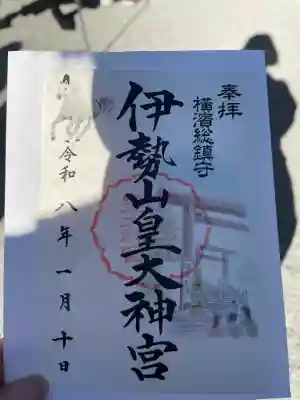 奉拝
横濱総鎮守
伊勢山皇大神宮
令和八年一月十日